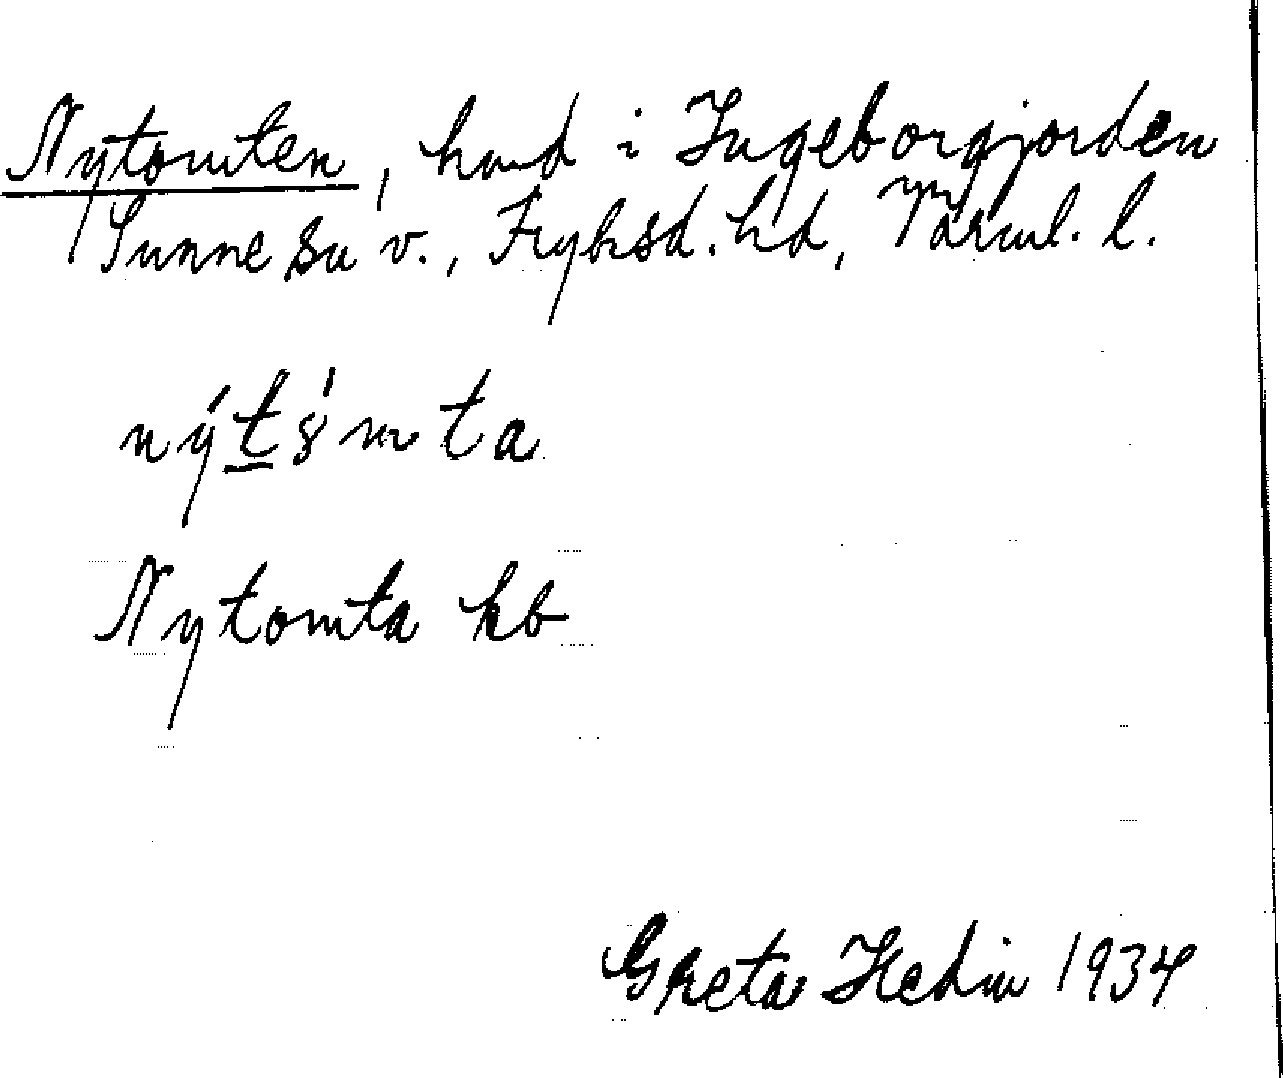 Nytomten, hmd i Ingeborgjorden
Sunne sn v., Fryksd. hd, Värml. l.
nýtǿmta
Nytomta kb
Greta Hedin 1934